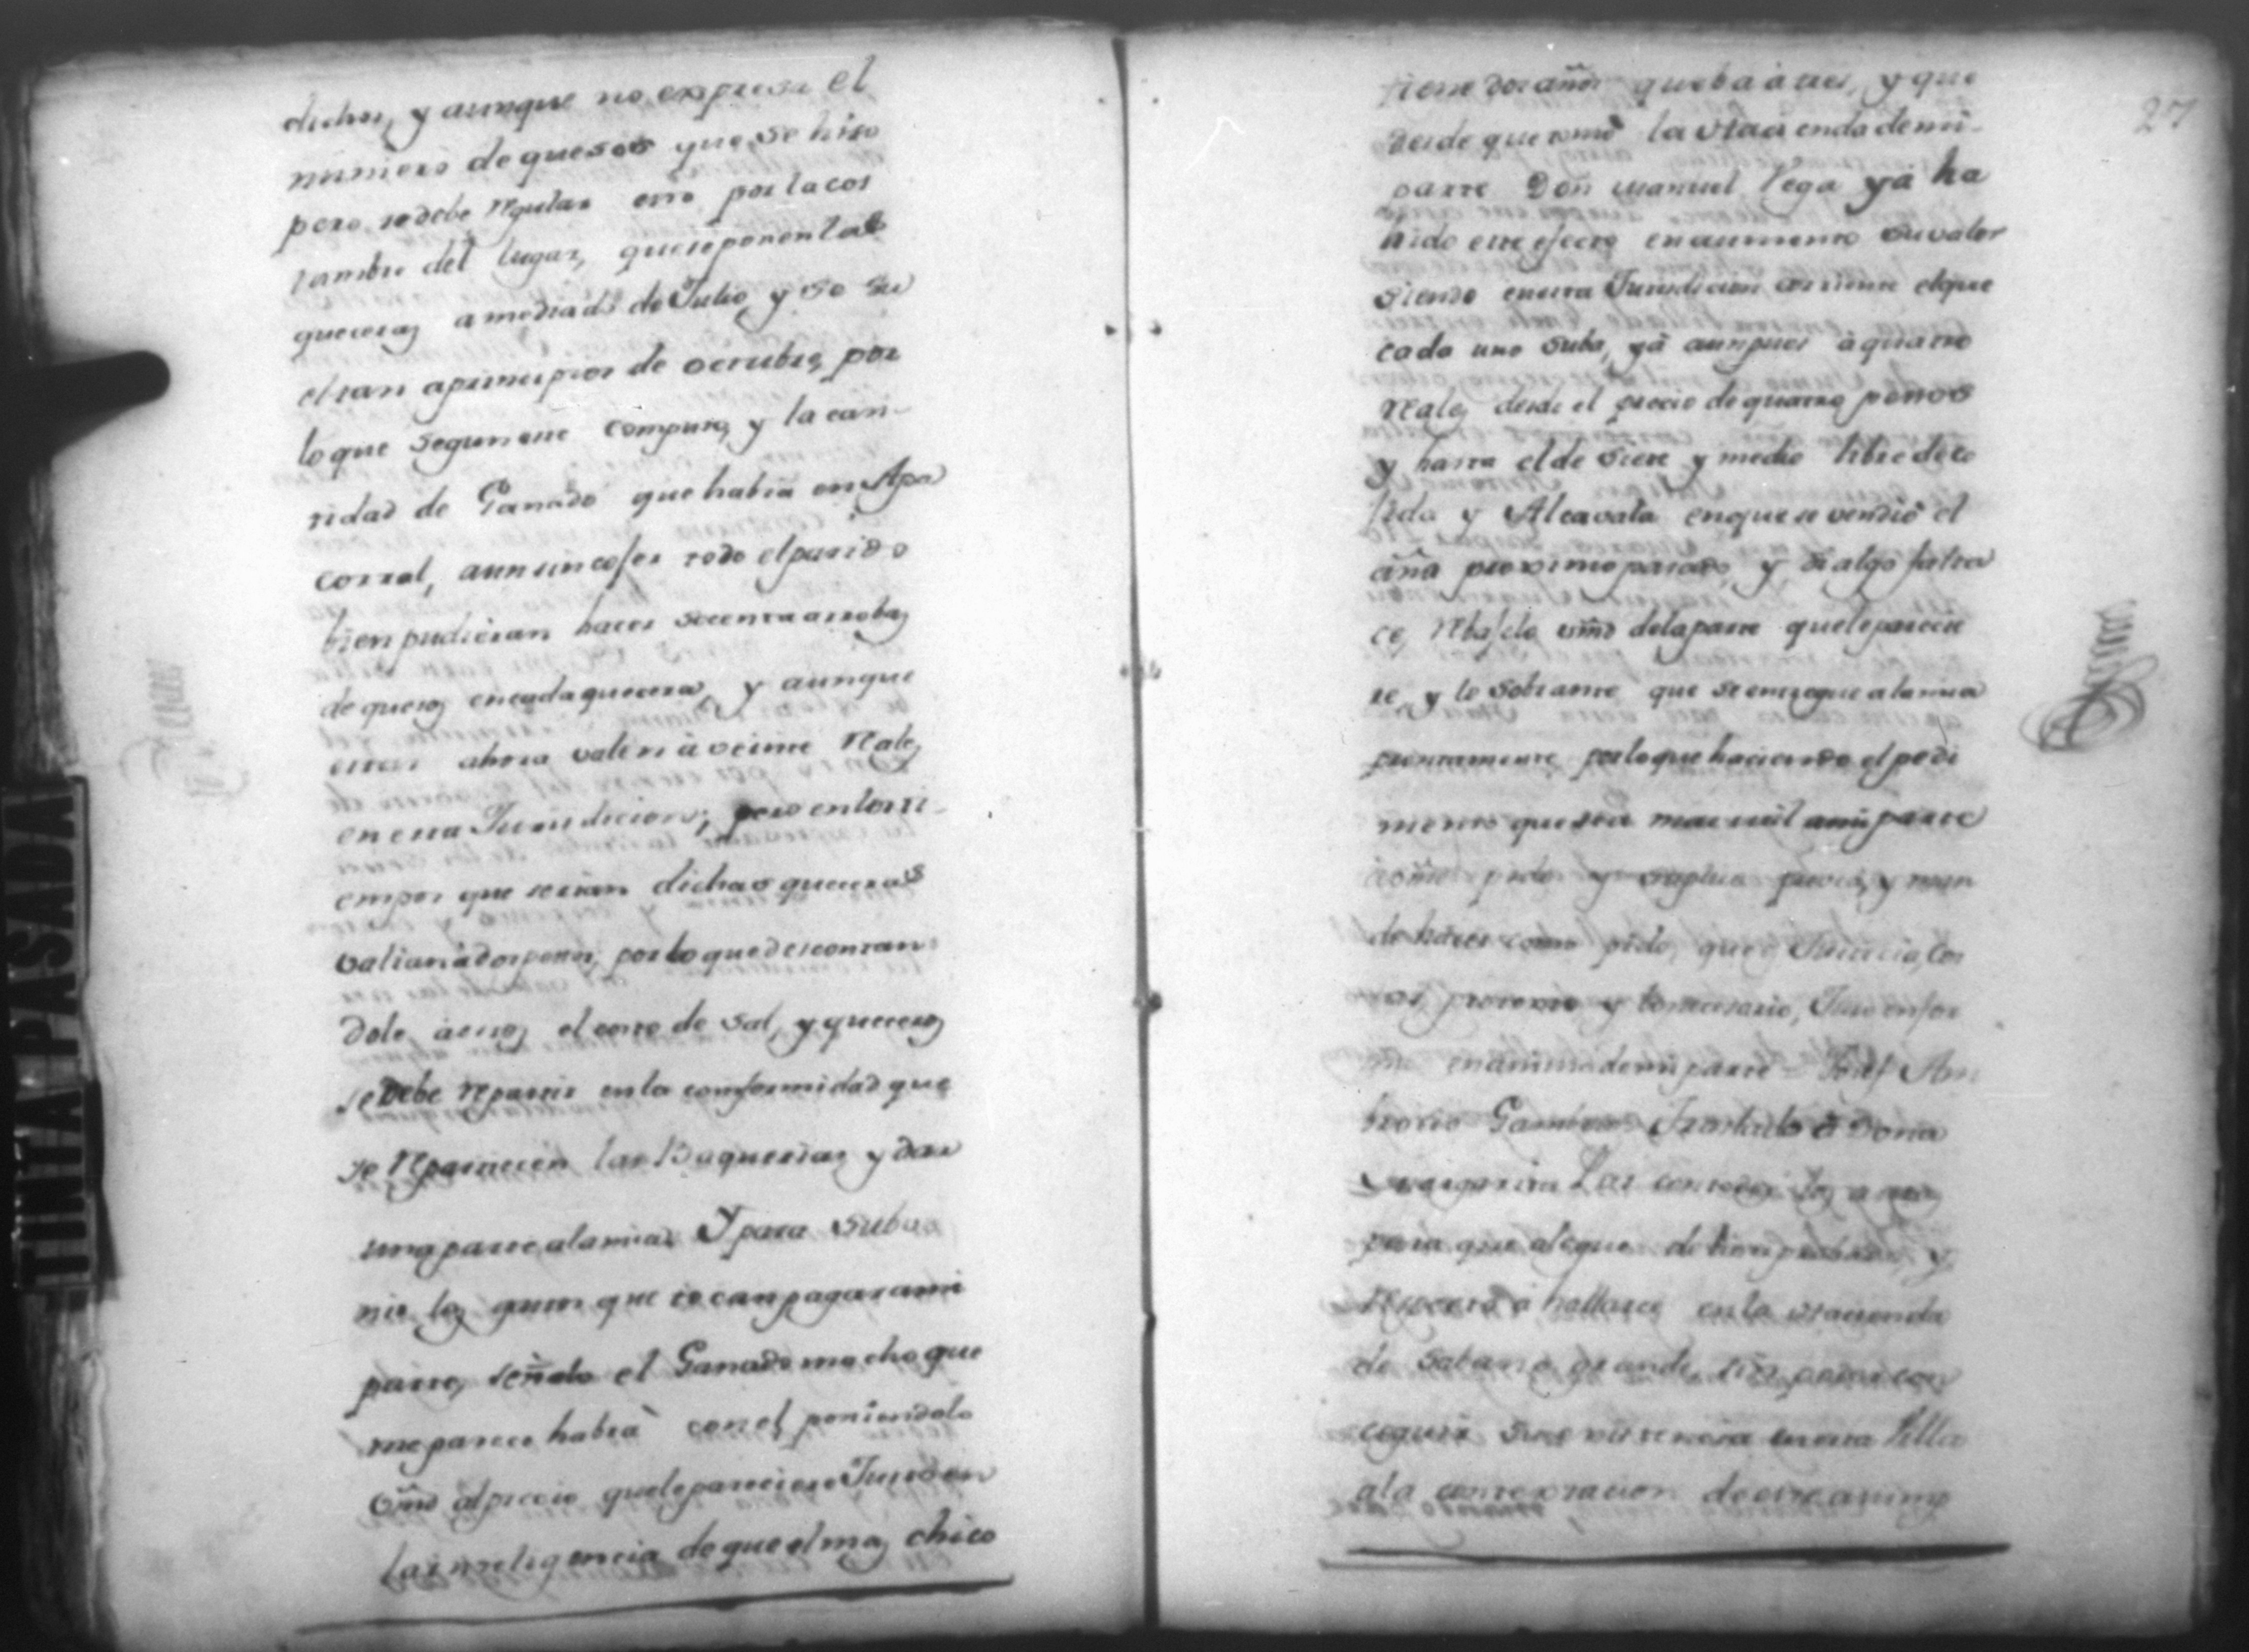 dichas, y aunque no expresa el
numero de quesos que se hizo
pero se debe regular esto por la cos
tumbre del lugar, que se ponen las
queceras a mediado de Julio, y se su
eltan a principios de octubre, por
lo que segun este computo, y la can-
tidad de Ganado que habia en Apa
corral, aun sin coser todo el parido
bien pudieran hacer secenta arrobas
de quesos en cada quecera, y aunque
estas ahora valen à veinte reales
en esta Jurisdicion; pero en los ti-
empos que serian dichas queceras
valian à dos pesos, por lo que descontan
dole à esto, el costo de sal, y queceros
se debe repartir en la conformidad que
se repartieren las Baquerias y dar
una parte a la mia. Y para
nio los que tocan pagar a mi
parte, señalo el Ganado macho que
me parece habrà con el poniendolo
Vmd al precio que le pareciere Justo en
la inteligencia de que el mas chico
27
tiene dos años que ba à tres, y que
desde que tomò la Haci enda de mi-
parte Don Manuel Vega yà ha
hido este efecto en aumento su valor
siendo en esta Jurisdicion corriente el que
cada uno suba, yà aun pues à quatro
reales desde el precio de quatro pesos
y hasta el de siete y medio libre de
y Alcavala en que se vendiò el
año proximo pasado, y si algo falta
ce, Vmd de la parte que le parecie
re, y lo sobrante que se entregue a la mia
prontamente por lo que haciendo el pedi
mento que sea mas util a mi parte
à Vmd pido y suplico provea, y man
de hacer como pido, que es Justicia, cos
tas, protexto y lo necesario, Juro en for
ma en anima de mi parte = Josef Am
brocio Gamboa Traslado à Doña
Margarita Laz con todos los autos
para que alegue de bien probado, y
respecto à hallarce en la Hacienda
de Sabana grande,
ceguir su en esta Villa
a la contextacion de este